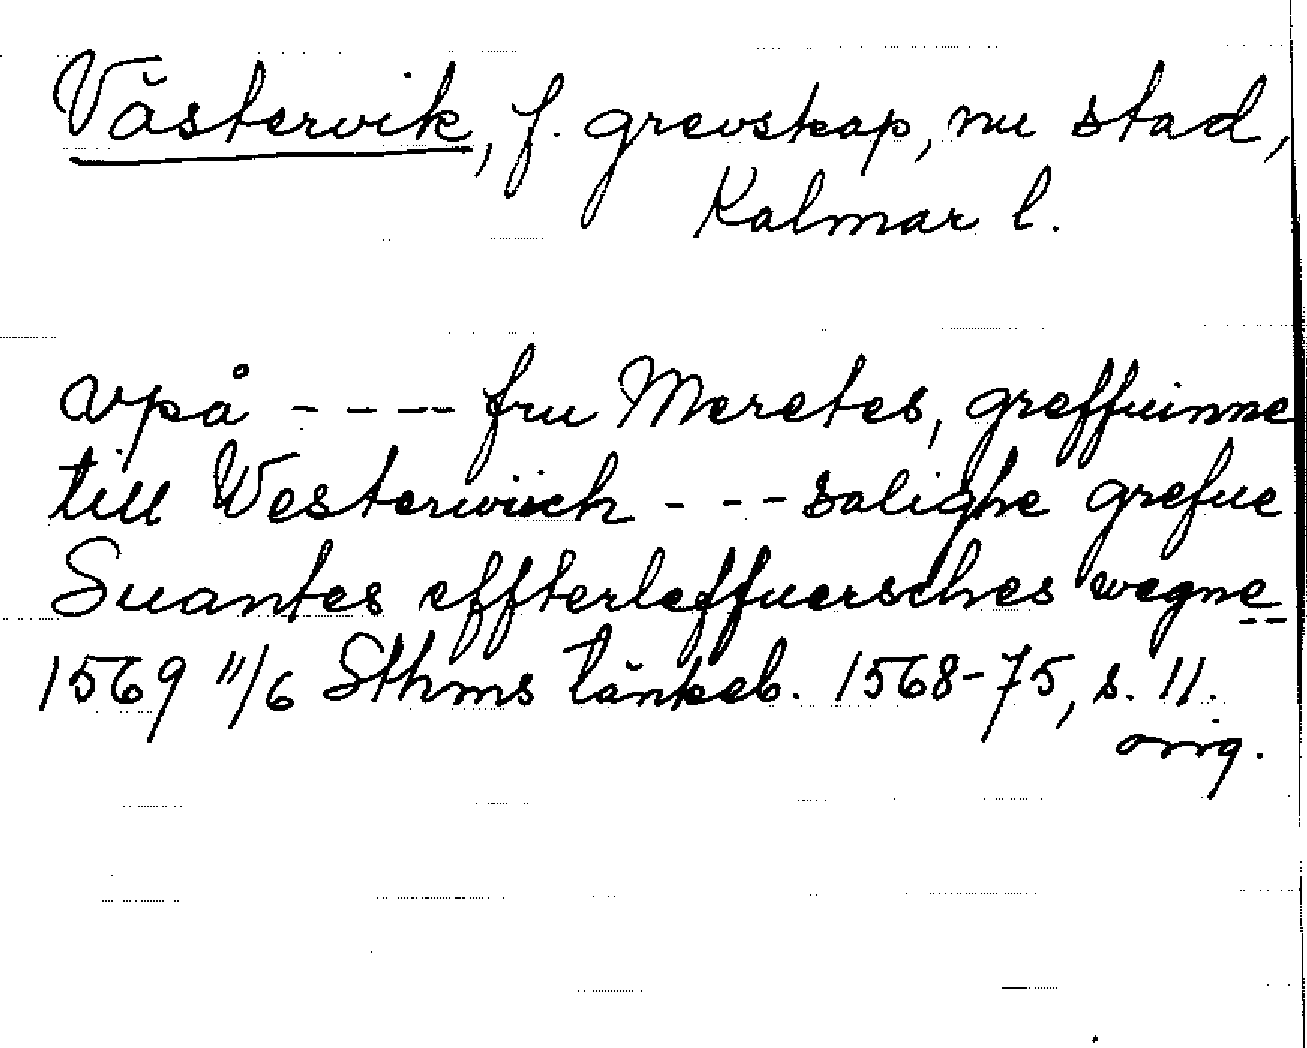 Västervik, f. grevskap, nu stad,
Kalmar l.
vpå - - - - fru Meretes, greffuinne
till Westerwiich - - - salighe grefue
Suantes effterleffuersches wegne - -
1569 11/6 Sthms tänkeb. 1568-75, s. 11.
orig.